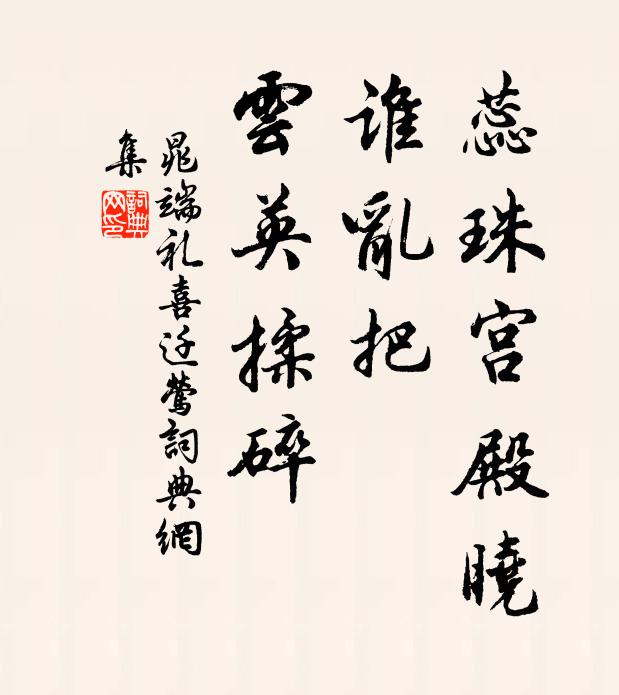 蕊珠宮殿曉
誰亂把
雲英揉碎
晁端礼喜迁鶯詞典網
集
詞典網印